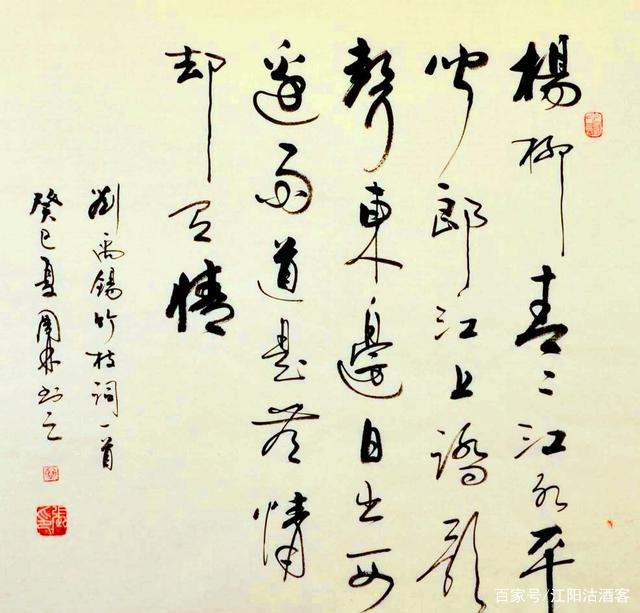 楊柳青〻江水平
聞郎江上踏歌
聲東邊日出西
邊雨道是無情
却有情
劉禹錫竹枝詞一首
癸巳夏
百家号/江阳沽酒客